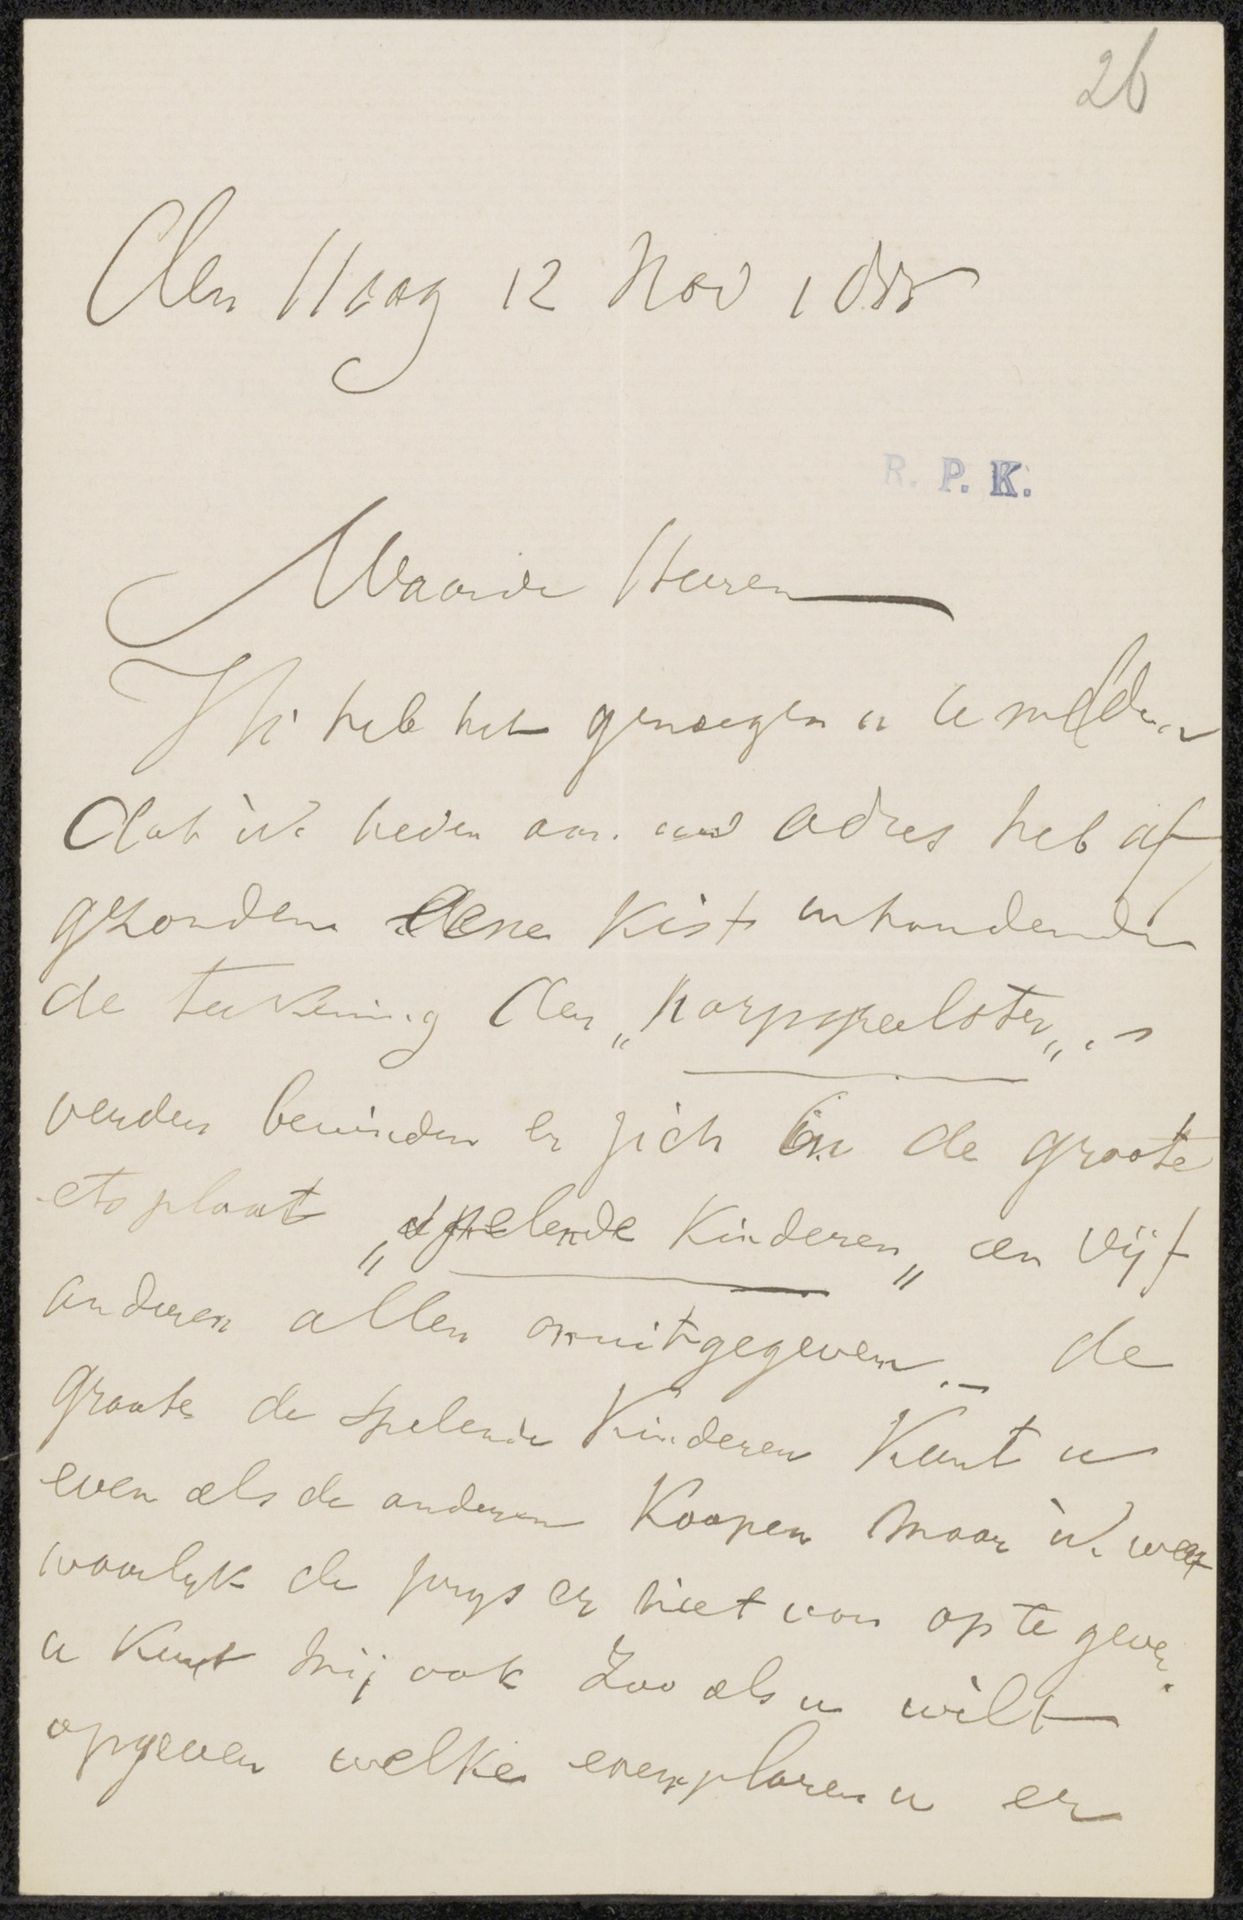 26
Den Haag 12 Nov 188
R. P. K.
Waarde Heeren
Ik heb het genoegen u te melden
dat ik heden aan uw adres heb af
gezonden eene Kist inhoudende
de teekening der „harpspeelster„
verder bevinden er zich in de groote
ets plaat „spelende Kinderen„ en vijf
anderen allen onuitgegeven. — de
groote de spelende Kinderen Kunt u
even als de anderen Koopen maar ik weet
waarlyk de prys er niet van op te geven.
u Kunt mij ook Zoo als u wilt
opgeven welke exemplaren u er